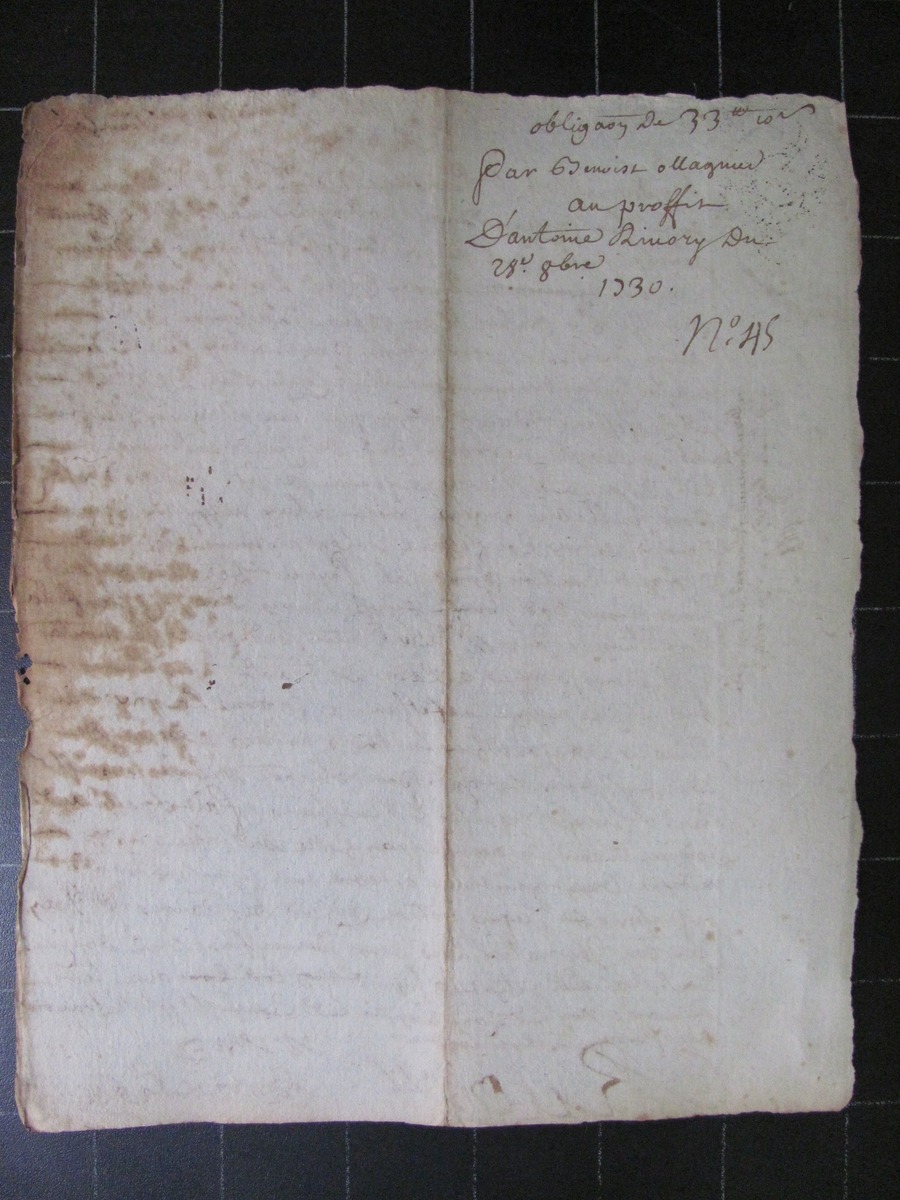 obligaon de 33 tt 10 s
Par Benoist Magnien
au proffit
D'antoine Rivory du
28e 8bre
1730.
N° 45